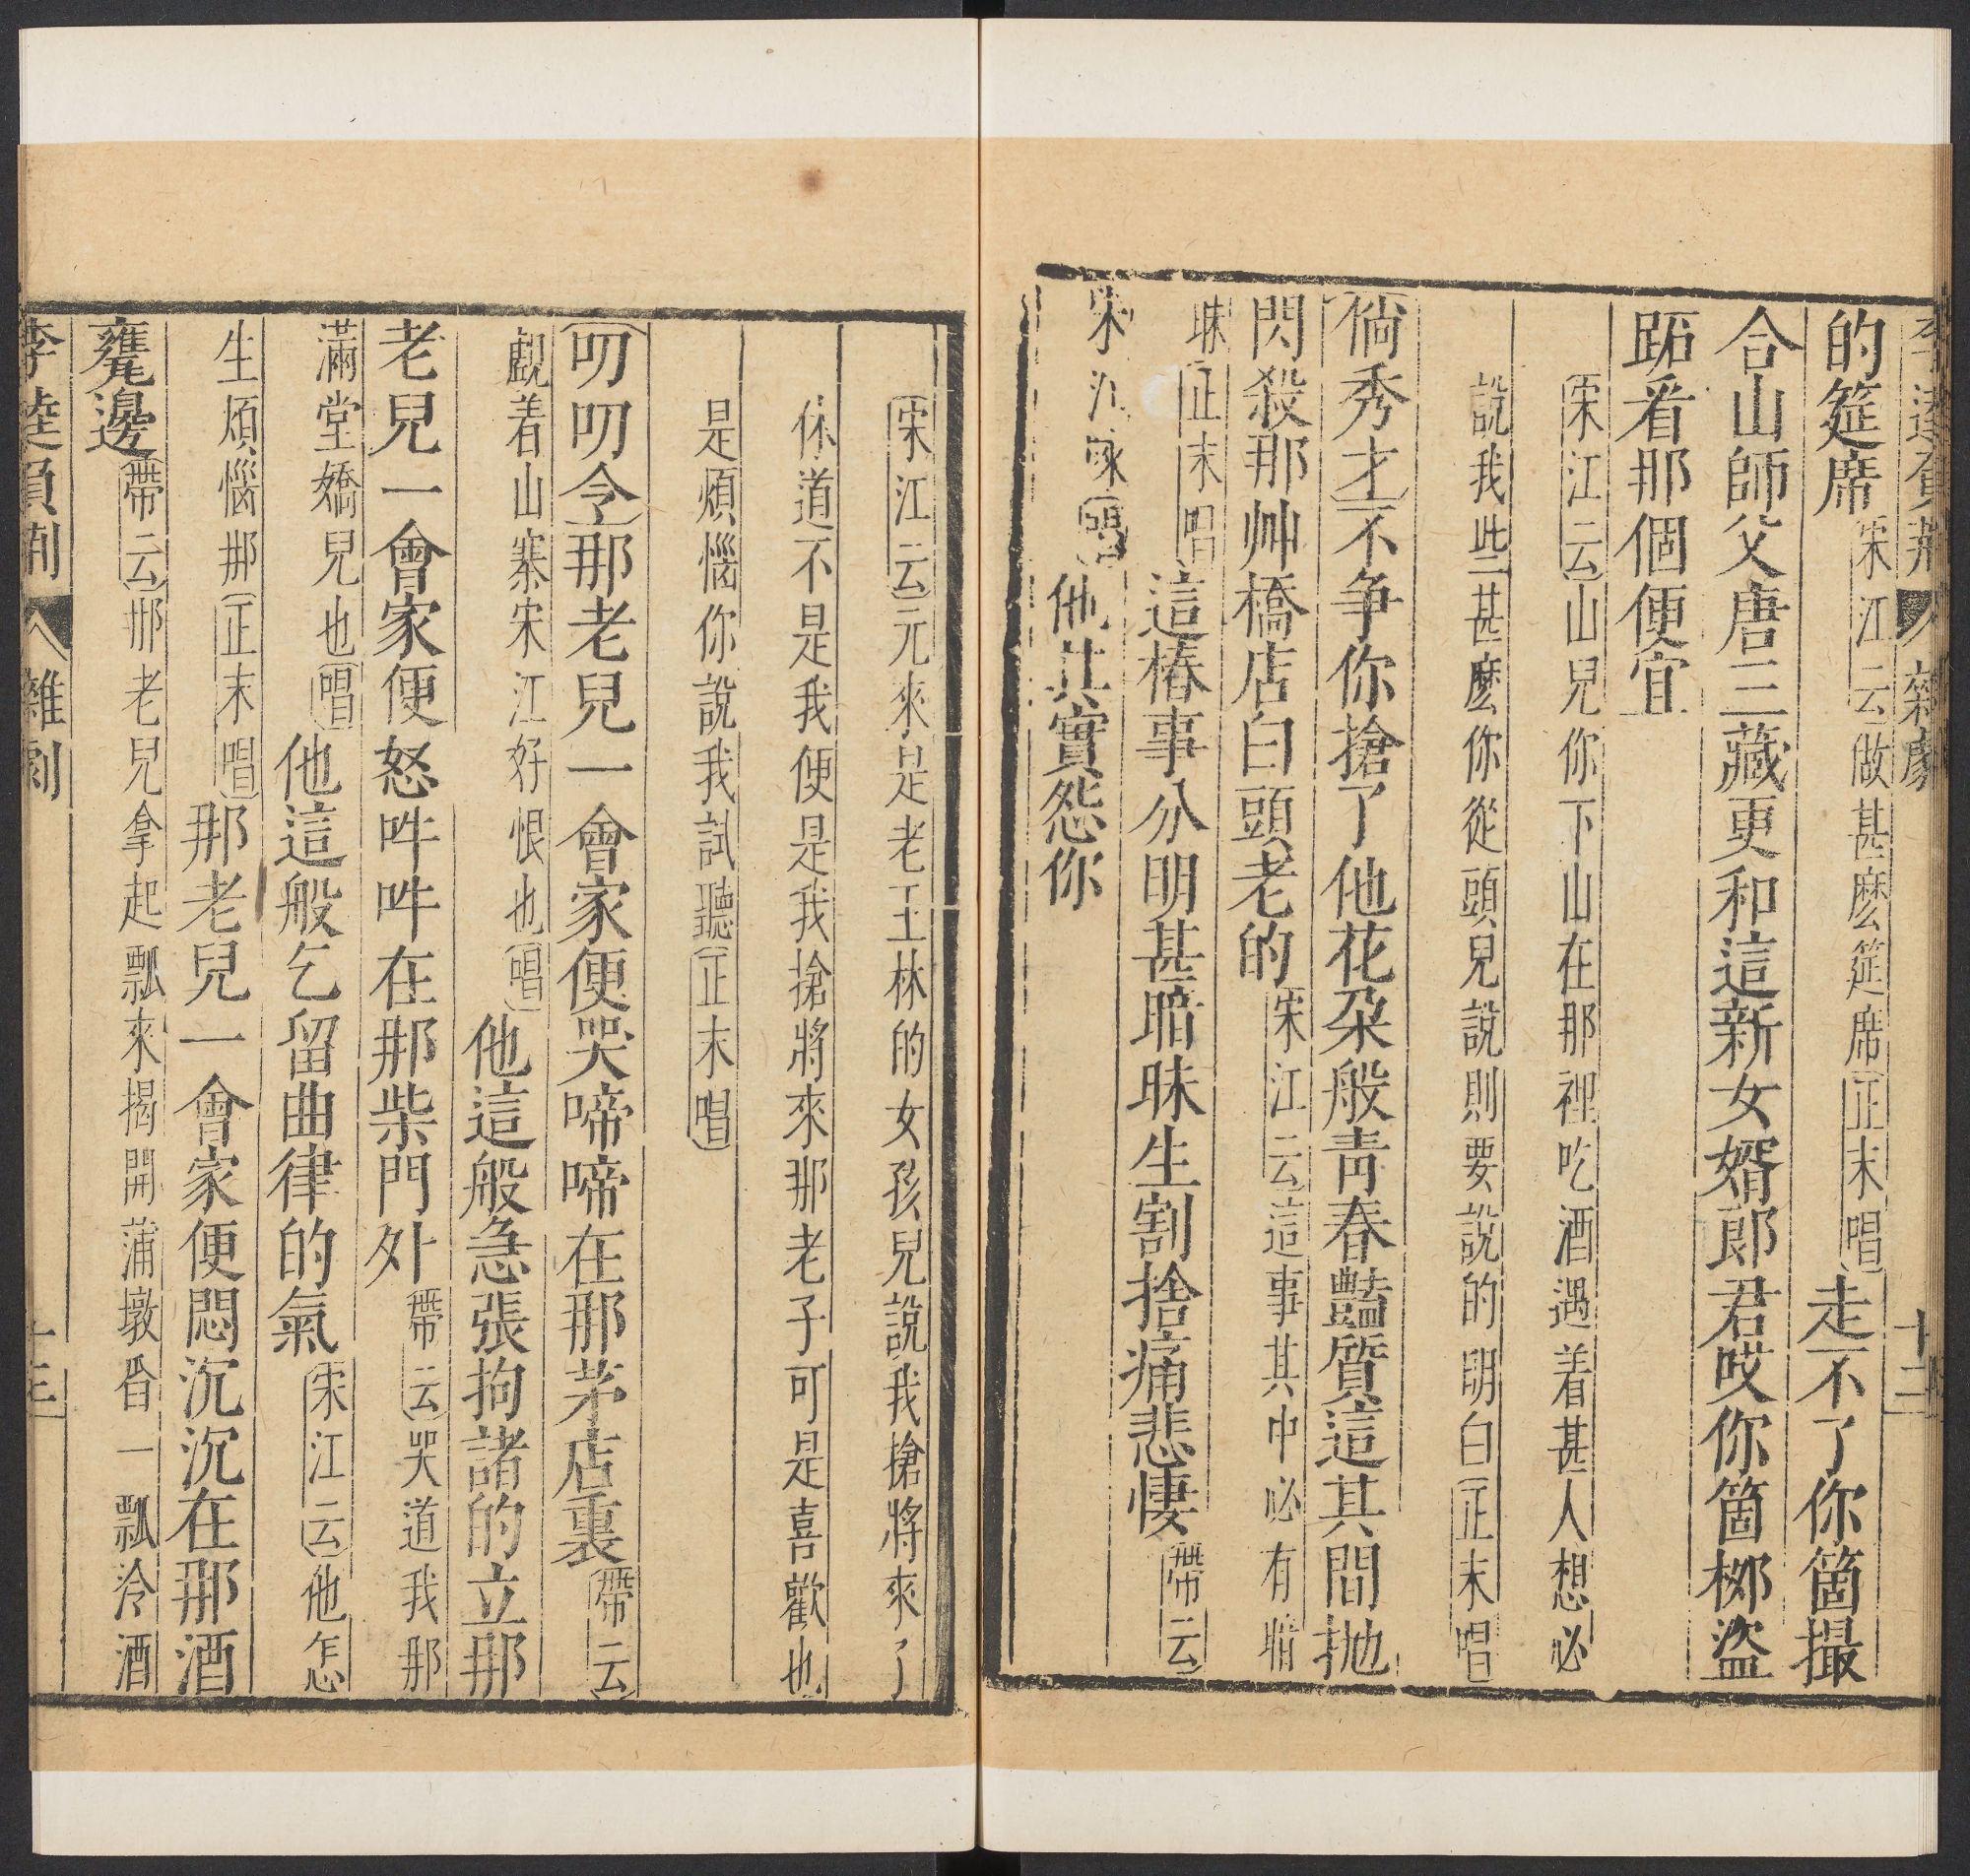 李逵負荊 雜劇 十二
的筵席宋江云做甚麽筵席正末唱走不了你箇撮
合山師父唐三藏更和這新女婿郎君哎你箇栁盜
跖看那個便宜
宋江云山兒你下山在那裡吃酒遇着甚人想必
說我些甚麽你從頭兒說則要說的明白正末唱
倘秀才不争你搶了他花朶般青春豔質這其間抛
閃殺那艸橋店白頭老的宋江云這事其中必有暗
昧正末唱這樁事分明甚暗昧生割捨痛悲悽帶云
宋江唻唱他其實怨你
宋江云元來是老王林的女孩兒說我搶將來了
休道不是我便是我搶將來那老子可是喜歡也
是煩惱你說我試聽正末唱
叨叨令那老兒一會家便哭啼啼在那茅店裏帶云
覷着山寨宋江好恨也唱他這般急張拘諸的立那
老兒一會家便怒吽吽在那柴門外帶云哭道我那
滿堂嬌兒也唱他這般乞留曲律的氣宋江云他怎
生煩惱那正末唱那老兒一會家便悶沉沉在那酒
甕邊帶云那老兒拿起瓢來揭開蒲墩舀一瓢冷酒
李逵負荊 雜劇 十三